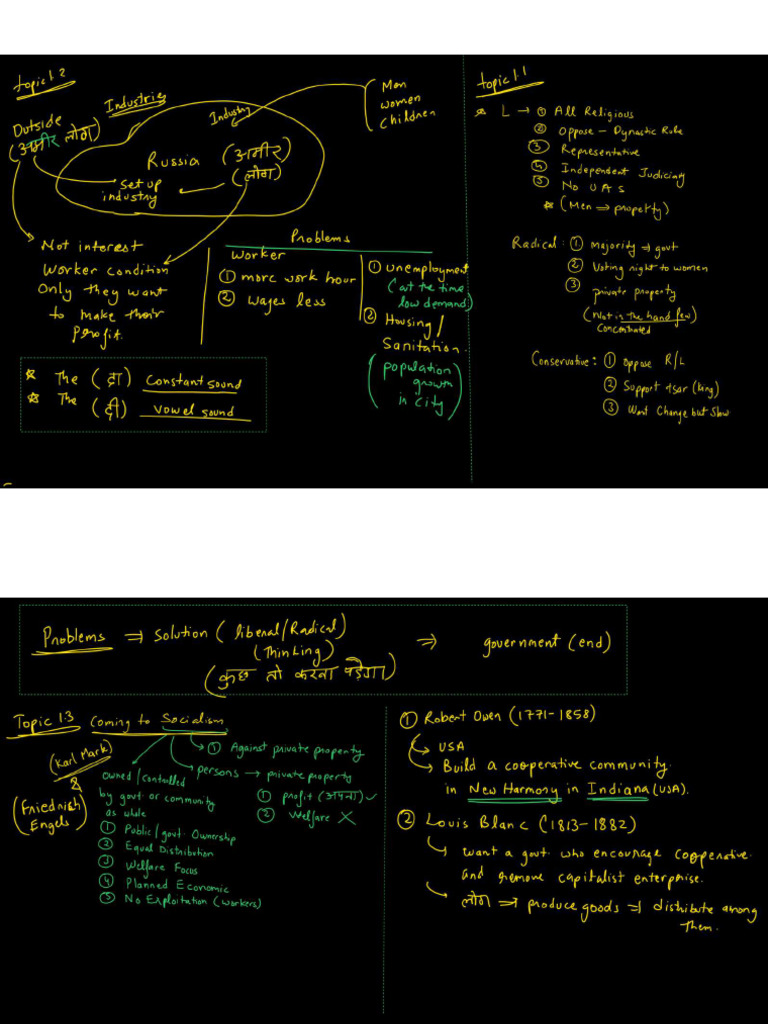 Topic 1.2
Industries
Industry
Men
women
children
Outside
(अमीर लोग)
Russia (अमीर)
(लोग)
set up
industry
Not interest
Worker condition
Only they want
to make their
Profit.
Problems
Worker
① more work hour
② wages less
① unemployment
(at the time
low demand)
② Housing/
Sanitation.
(population
growth
in city)
☆ The (द्रा) Constant sound
☆ The (दी) vowel sound
Topic 1.1
☆ L → ① All Religious
② Oppose - Dynastic Role
③ Representative
④ Independent Judiciary
⑤ No U A S
☆ (Men ⇒ property)
Radical: ① Majority ⇒ govt
② Voting right to women
③ private property
(Not in the hand few)
Concentrated
Conservative: ① oppose R/L
② Support tsar (king)
③ Want Change but slow
Problems ⇒ solution (liberal/Radical) ⇒ government (end)
(Thinking)
(कुछ तो करना पड़ेगा)
Topic 1.3 Coming to Socialism
(Karl Mark)
&
(Friedrish
Engels)
owned/controlled
by govt or community
as whole
① Public/govt. Ownership
② Equal Distribution
③ Welfare Focus
④ Planned Economic
⑤ No Exploitation (workers)
① Against private property
persons → private property
① profit (अपना) ✓
② Welfare X
① Robert Owen (1771-1858)
USA
Build a cooperative community
in New Harmony in Indiana (USA).
② Louis Blanc (1813-1882)
want a govt. who encourage cooperative
and remove capitalist enterprise.
लोग ⇒ produce goods ⇒ distribute among
them.